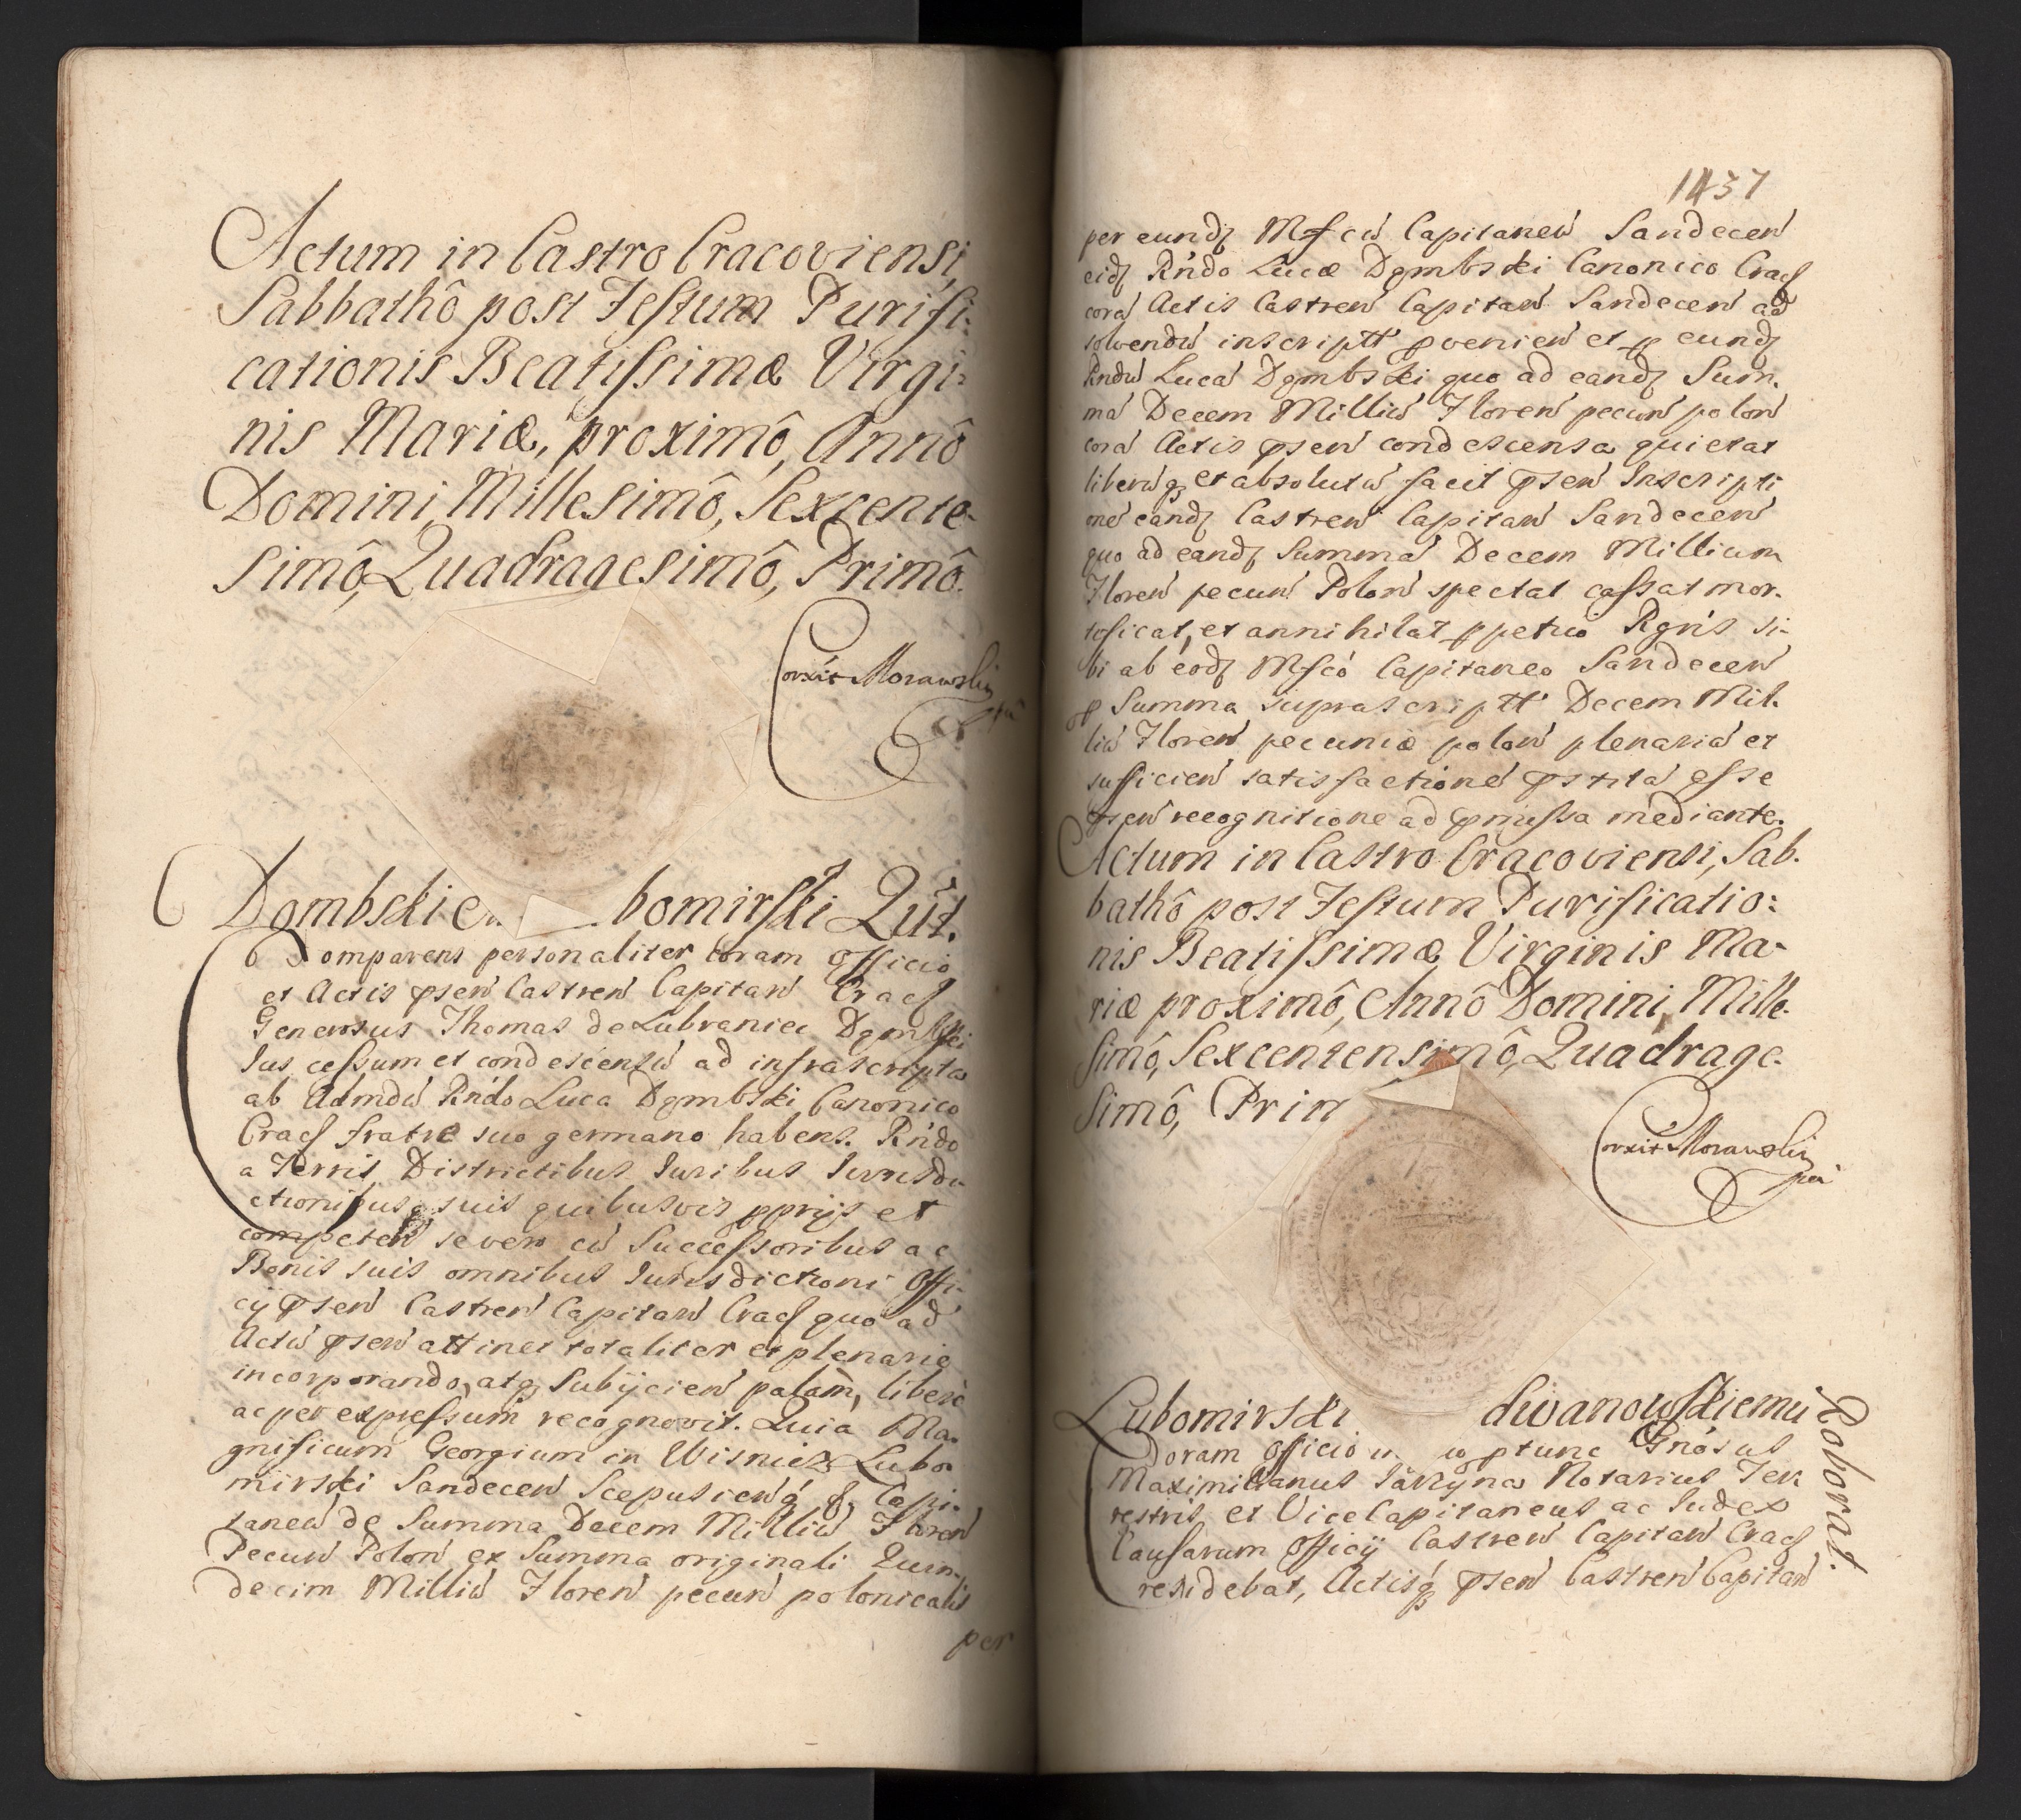 Actum in Castro Cracoviensi,
Sabbathô post Festum Purifi:
cationis Beatissimæ Virgi:
nis Mariæ, proximô, Annô
Domini Millesimô, Sexcente-
simô, Quadragesimô, Primô.
Corxit Morawski
Dąmbski bomirski Quit.
Comparens personaliter coram Officio
et Actis psen̄ Castren̄ Capitan̄ Crac
Generosus Thomas de Lubraniec Dąmbski
Jus cessum et condescensū ad infrascripta
ab Admdū Rńdo Luca Dąmbski Canonico
Crac fratre suo germano habens. Rńdo
a Terris Districtibus Juribus Jurisdi
ctionibusq suis quibusvis pprijs et
competen̄ se vero cū Successoribus ac
Bonis suis omnibus Jurisdictioni Offi-
cij psen̄ Castren̄ Capitan̄ Crac quo ad
Actū psen̄ attinet totaliter et plenarie
incorporando, atq Subijcien̄ palam, liberè
ac per expressum recognovit. Quia Ma-
gnificum Georgium in Wisnicz Lubo
mirski Sandecen̄ Scepusien̄q & Capi-
taneū de Summa Decem Milliū Floren̄
Pecun̄ Polon̄ ex Summa originali Quin-
decim Milliū Floren̄ pecun̄ polonicalis
per
1437
per eundȝ Mfcū Capitaneū Sandecen̄
eidȝ Rńdo Lucæ Dąmbski Canonico Crac
corā Actis Castren̄ Capitan̄ Sandecen̄ ad
solvendū inscriptt pvenien̄ et p eundȝ
Rndū Lucā Dąmbski quo ad eandȝ Sum-
mā Decem Milliū Floren̄ pecun̄ polon̄
corā Actis psen̄ condescensa quietat
liberūq et absolutū facit psen̄ Inscripti
onē eandȝ Castren̄ Capitan̄ Sandecen̄
quo ad eandȝ Summā Decem Millium
Floren̄ pecun̄ Polon̄ spectat cassat mor-
tificat, et annihilat ppetuo Rgńs si-
bi ab eodȝ Mfcó Capitaneo Sandecen̄
p Summa suprascriptt Decem Mil-
liū Floren̄ pecuniæ polon̄ plenariā et
sufficien̄ satisfactionē pstitā esse
psen̄ recognitione ad pmissa mediante.
Actum in Castro Cracoviensi, Sab-
bathô post Festum Purificatio:
nis Beatissimæ Virginis Ma-
riæ proximô, Annô Domini Mille-
simô, Sexcentensimô, Quadrage-
simô, Prim
Corxit Morawski
Lubomirski diwanowskiemu
Roborat.
Coram Officio ptunc Gnósus
Maximilianus Jakłyna Notarius Ter-
restris et ViceCapitaneus ac Judex
Causarum Officij Castren̄ Capitan̄ Crac
residebat, Actisq psen̄ Castren̄ Capitan̄